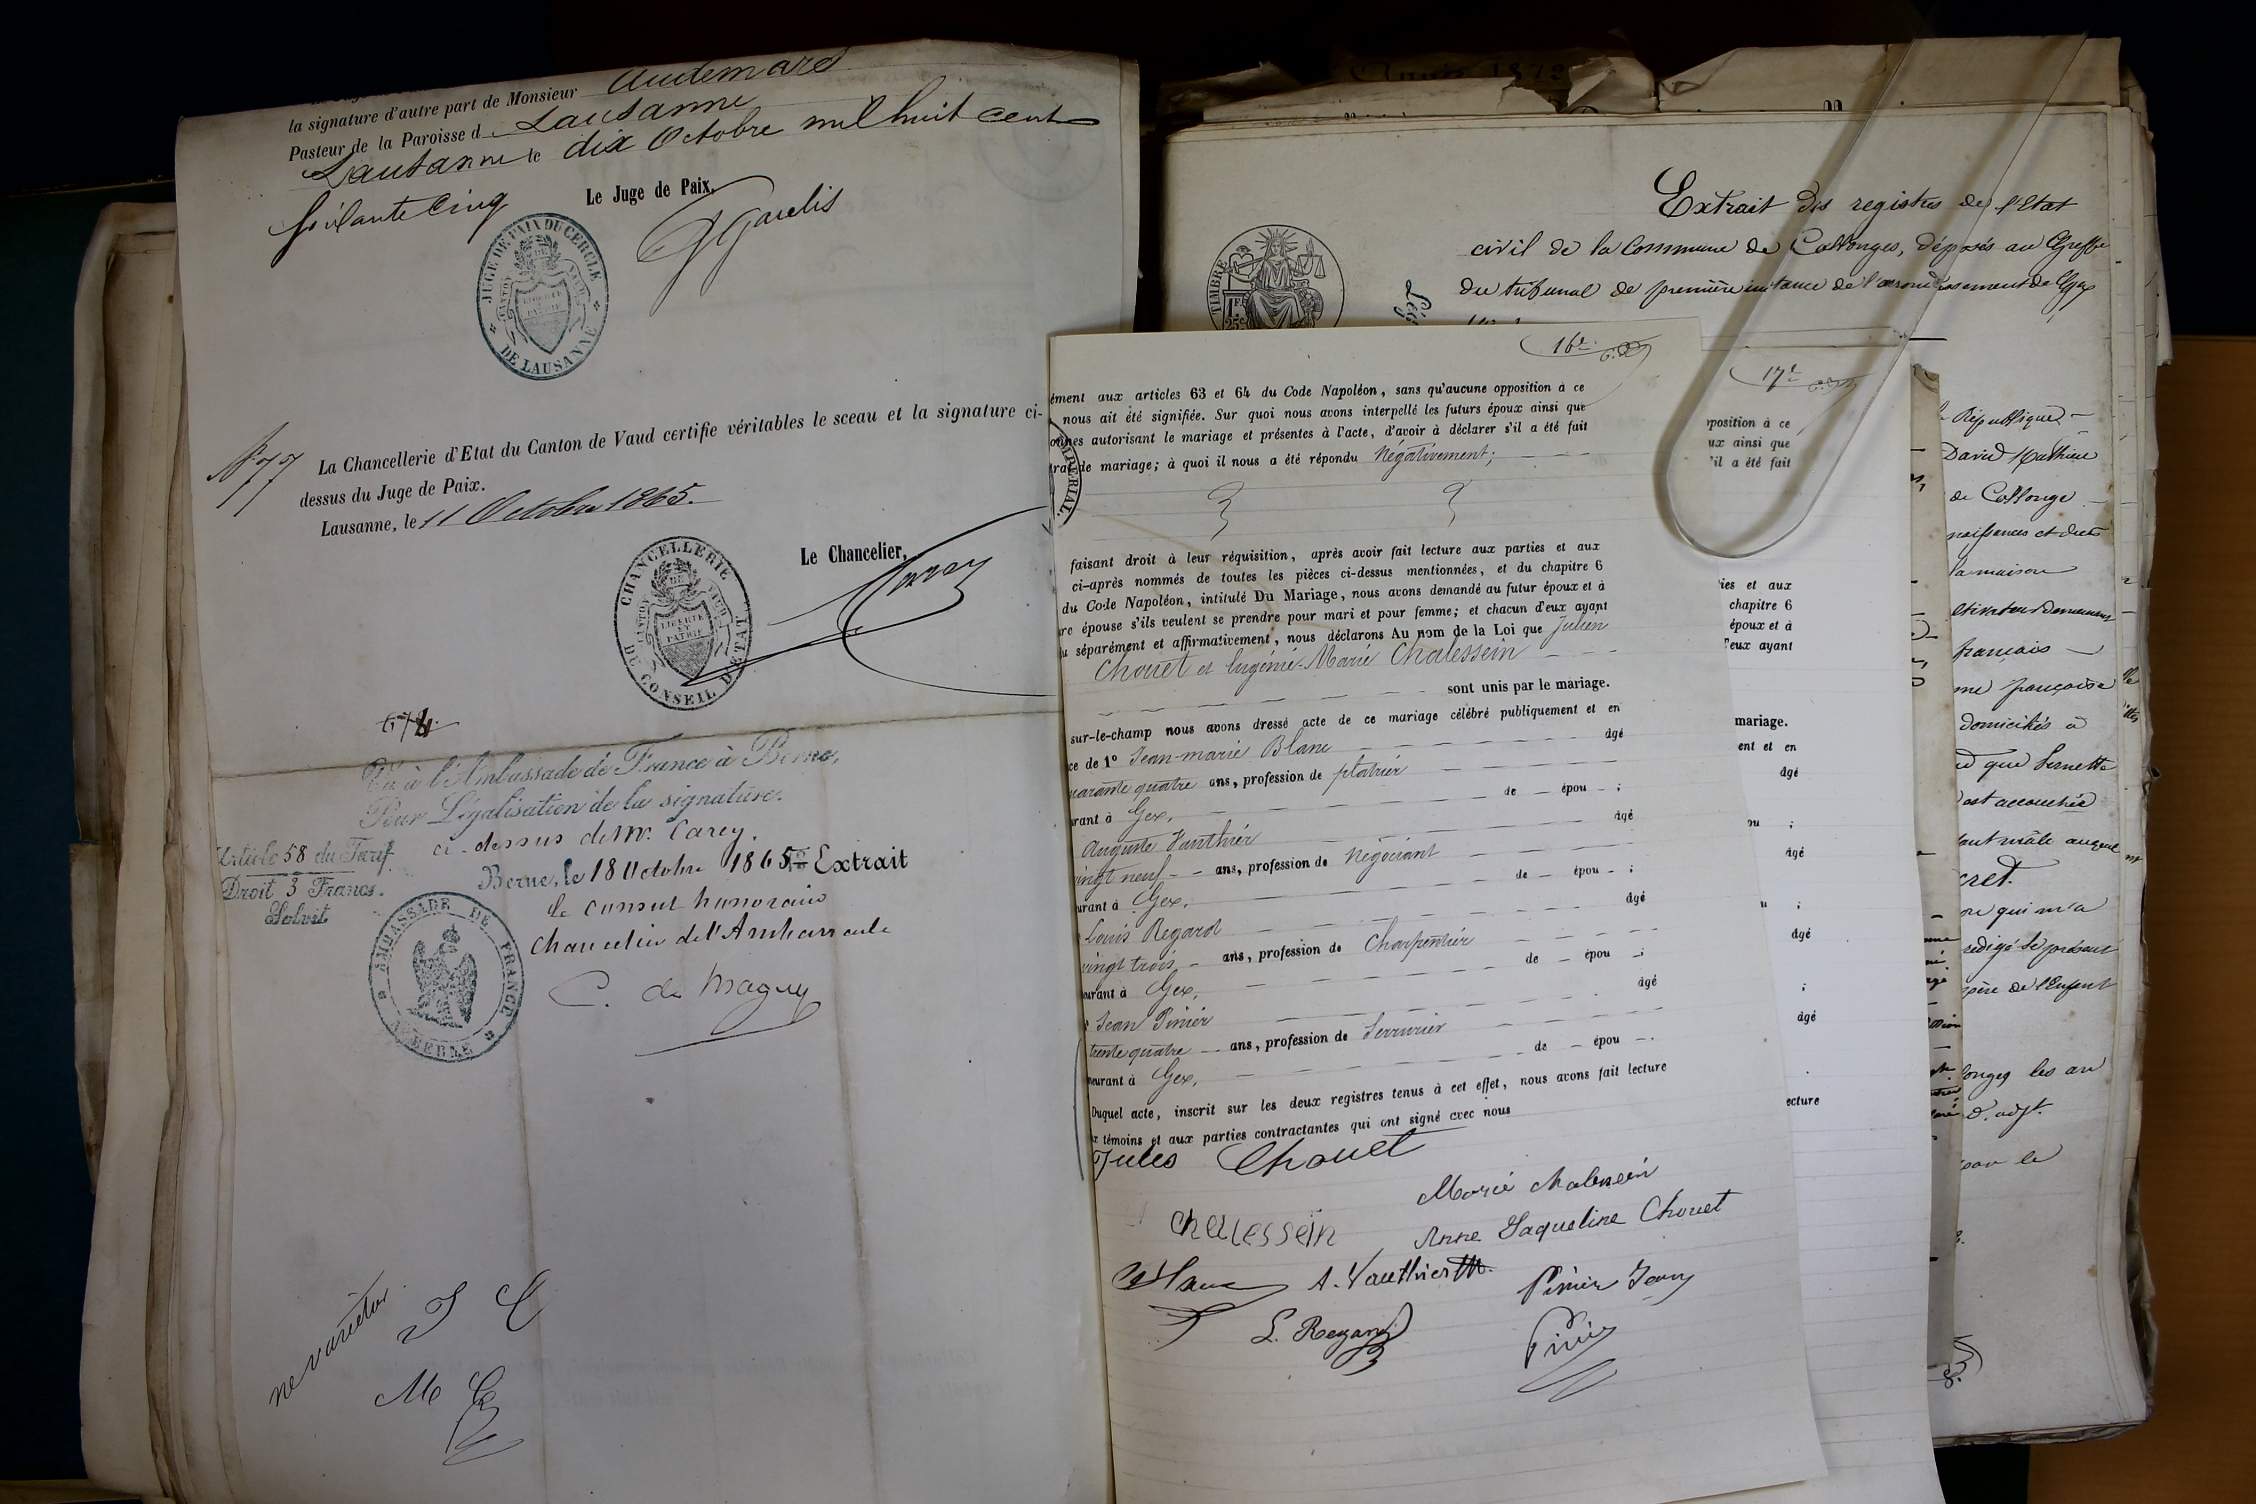 la signature d'autre part de Monsieur Audemars
Pasteur de la Paroisse d Lausanne
Lausanne le dix Octobre mil huit cent
soixante cinq
Le Juge de Paix,
JUGE DE PAIX DU CERCLE
CANTON DE VAUD
LIBERTÉ ET PATRIE
DE LAUSANNE
N° 77
La Chancellerie d'Etat du Canton de Vaud certifie véritables le sceau et la signature ci-
dessus du Juge de Paix.
Lausanne, le 11 Octobre 1865.
Le Chancelier,
Carey
CHANCELLERIE
CANTON DE VAUD
LIBERTÉ ET PATRIE
DU CONSEIL D'ETAT
Vu à l'Ambassade de France à Berne,
Pour Légalisation de la signature
ci-dessus de Mr. Carey.
Article 58 du Tarif.
Droit 3 Francs.
Solvit
Berne, le 18 Octobre 1865 Extrait
Le Consul honoraire
Chancelier de l'Ambassade
AMBASSADE DE FRANCE
A BERNE
ne varietur
J C
M C
Année 1872
Extrait des registres de l'Etat
civil de la Commune de Collonges, déposés au Greffe
du tribunal de première instance de l'arrondissement de Gex
TIMBRE
1F.
25c
16e
ément aux articles 63 et 64 du Code Napoléon, sans qu'aucune opposition à ce
nous ait été signifiée. Sur quoi nous avons interpellé les futurs époux ainsi que
onnes autorisant le mariage et présentes à l'acte, d'avoir à déclarer s'il a été fait
trat de mariage; à quoi il nous a été répondu Négativement;
IMPERIAL.
faisant droit à leur réquisition, après avoir fait lecture aux parties et aux
ci-après nommés de toutes les pièces ci-dessus mentionnées, et du chapitre 6
du Code Napoléon, intitulé Du Mariage, nous avons demandé au futur époux et à
re épouse s'ils veulent se prendre pour mari et pour femme; et chacun d'eux ayant
u séparément et affirmativement, nous déclarons Au nom de la Loi que Julien
Chouet et Eugénie-Marie Chalessein
sont unis par le mariage.
sur-le-champ nous avons dressé acte de ce mariage célébré publiquement et en
ce de 1° Jean-marie Blanc âgé
uarante quatre ans, profession de plâtrier
urant à Gex, de épou ;
Auguste Vauthier âgé
vingt neuf ans, profession de Négociant
urant à Gex, de épou ;
Louis Regard âgé
vingt trois ans, profession de Charpentier
eurant à Gex, de épou ;
Jean Pinier âgé
trente quatre ans, profession de Serrurier
meurant à Gex, de épou .
Duquel acte, inscrit sur les deux registres tenus à cet effet, nous avons fait lecture
x témoins et aux parties contractantes qui ont signé avec nous
Jules Chouet
Marie Chalessein
Chalessein
Anne Jaqueline Chouet
Blanc A. Vauthier
Pinier Jean
L. Regard
17e
pposition à ce
ux ainsi que
'il a été fait
ies et aux
chapitre 6
époux et à
'eux ayant
mariage.
ent et en
âgé
ou ;
âgé
u ;
âgé
;
âgé
.
ecture
République
David Mathieu
de Collonge
naissances et decès
la maison
français
me française
domiciliés à
d que Pernette
est accouchée
fant mâle auquel
cret.
on qui m'a
redigé le présent
père de l'Enfant
longes les an
d. adjt.
par le